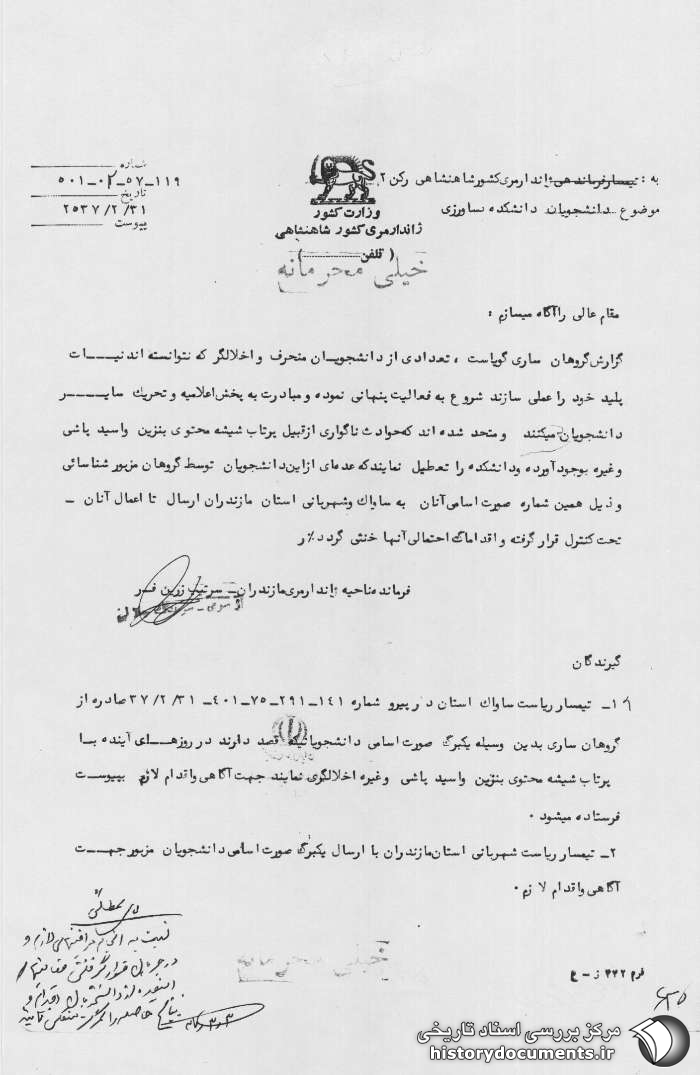 شماره
۵۰۱-۰۲-۵۷-۱۱۹
تاریخ
۲۵۳۷/۲/۳۱
پیوست
وزارت کشور
ژاندارمری کشور شاهنشاهی
( تلفن )
خیلی محرمانه
به : تیمسار فرماندهی ژاندارمری کشور شاهنشاهی رکن ۲
موضوع دانشجویان دانشکده ساورزی
مقام عالی را آگاه میسازم :
گزارش گروهان ساری گویاست ، تعدادی از دانشجویان منحرف و اخلالگر که نتوانسته اند نیات
پلید خود را عملی سازند شروع به فعالیت پنهانی نموده و مبادرت به پخش اعلامیه و تحریک سایر
دانشجویان میکنند و متحد شده اند که حوادث ناگواری از قبیل پرتاب شیشه محتوی بنزین و اسید پاشی
و غیره بوجود آورده و دانشکده را تعطیل نمایند که عده‌ای از این دانشجویان توسط گروهان مزبور شناسائی
و ذیل همین شماره صورت اسامی آنان به ساواک و شهربانی استان مازندران ارسال تا اعمال آنان -
تحت کنترل قرار گرفته و اقدامات احتمالی آنها خنثی گردد٪ ر
فرمانده ناحیه ژاندارمری مازندران - سرتیپ زرین فر
از سوی -
گیرندگان
۱- تیمسار ریاست ساواک استان در پیرو شماره ۱۴۱-۲۹۱-۷۵-۴۰۱- ۳۷/۲/۳۱ صادره از
گروهان ساری بدین وسیله یکبرگ صورت اسامی دانشجویانیکه قصد دارند در روزهای آینده با
پرتاب شیشه محتوی بنزین و اسید پاشی و غیره اخلالگری نمایند جهت آگاهی و اقدام لازم بپیوست
فرستاده میشود .
۲- تیمسار ریاست شهربانی استان مازندران با ارسال یکبرگ صورت اسامی دانشجویان مزبور جهت
آگاهی و اقدام لازم .
نسبت به انجام مراقبتهای لازم و
در جریان قرار گرفتن
اقدام و
خیلی محرمانه
فرم ۴۴۲ ز - ع
مرکز بررسی اسناد تاریخی
historydocuments.ir